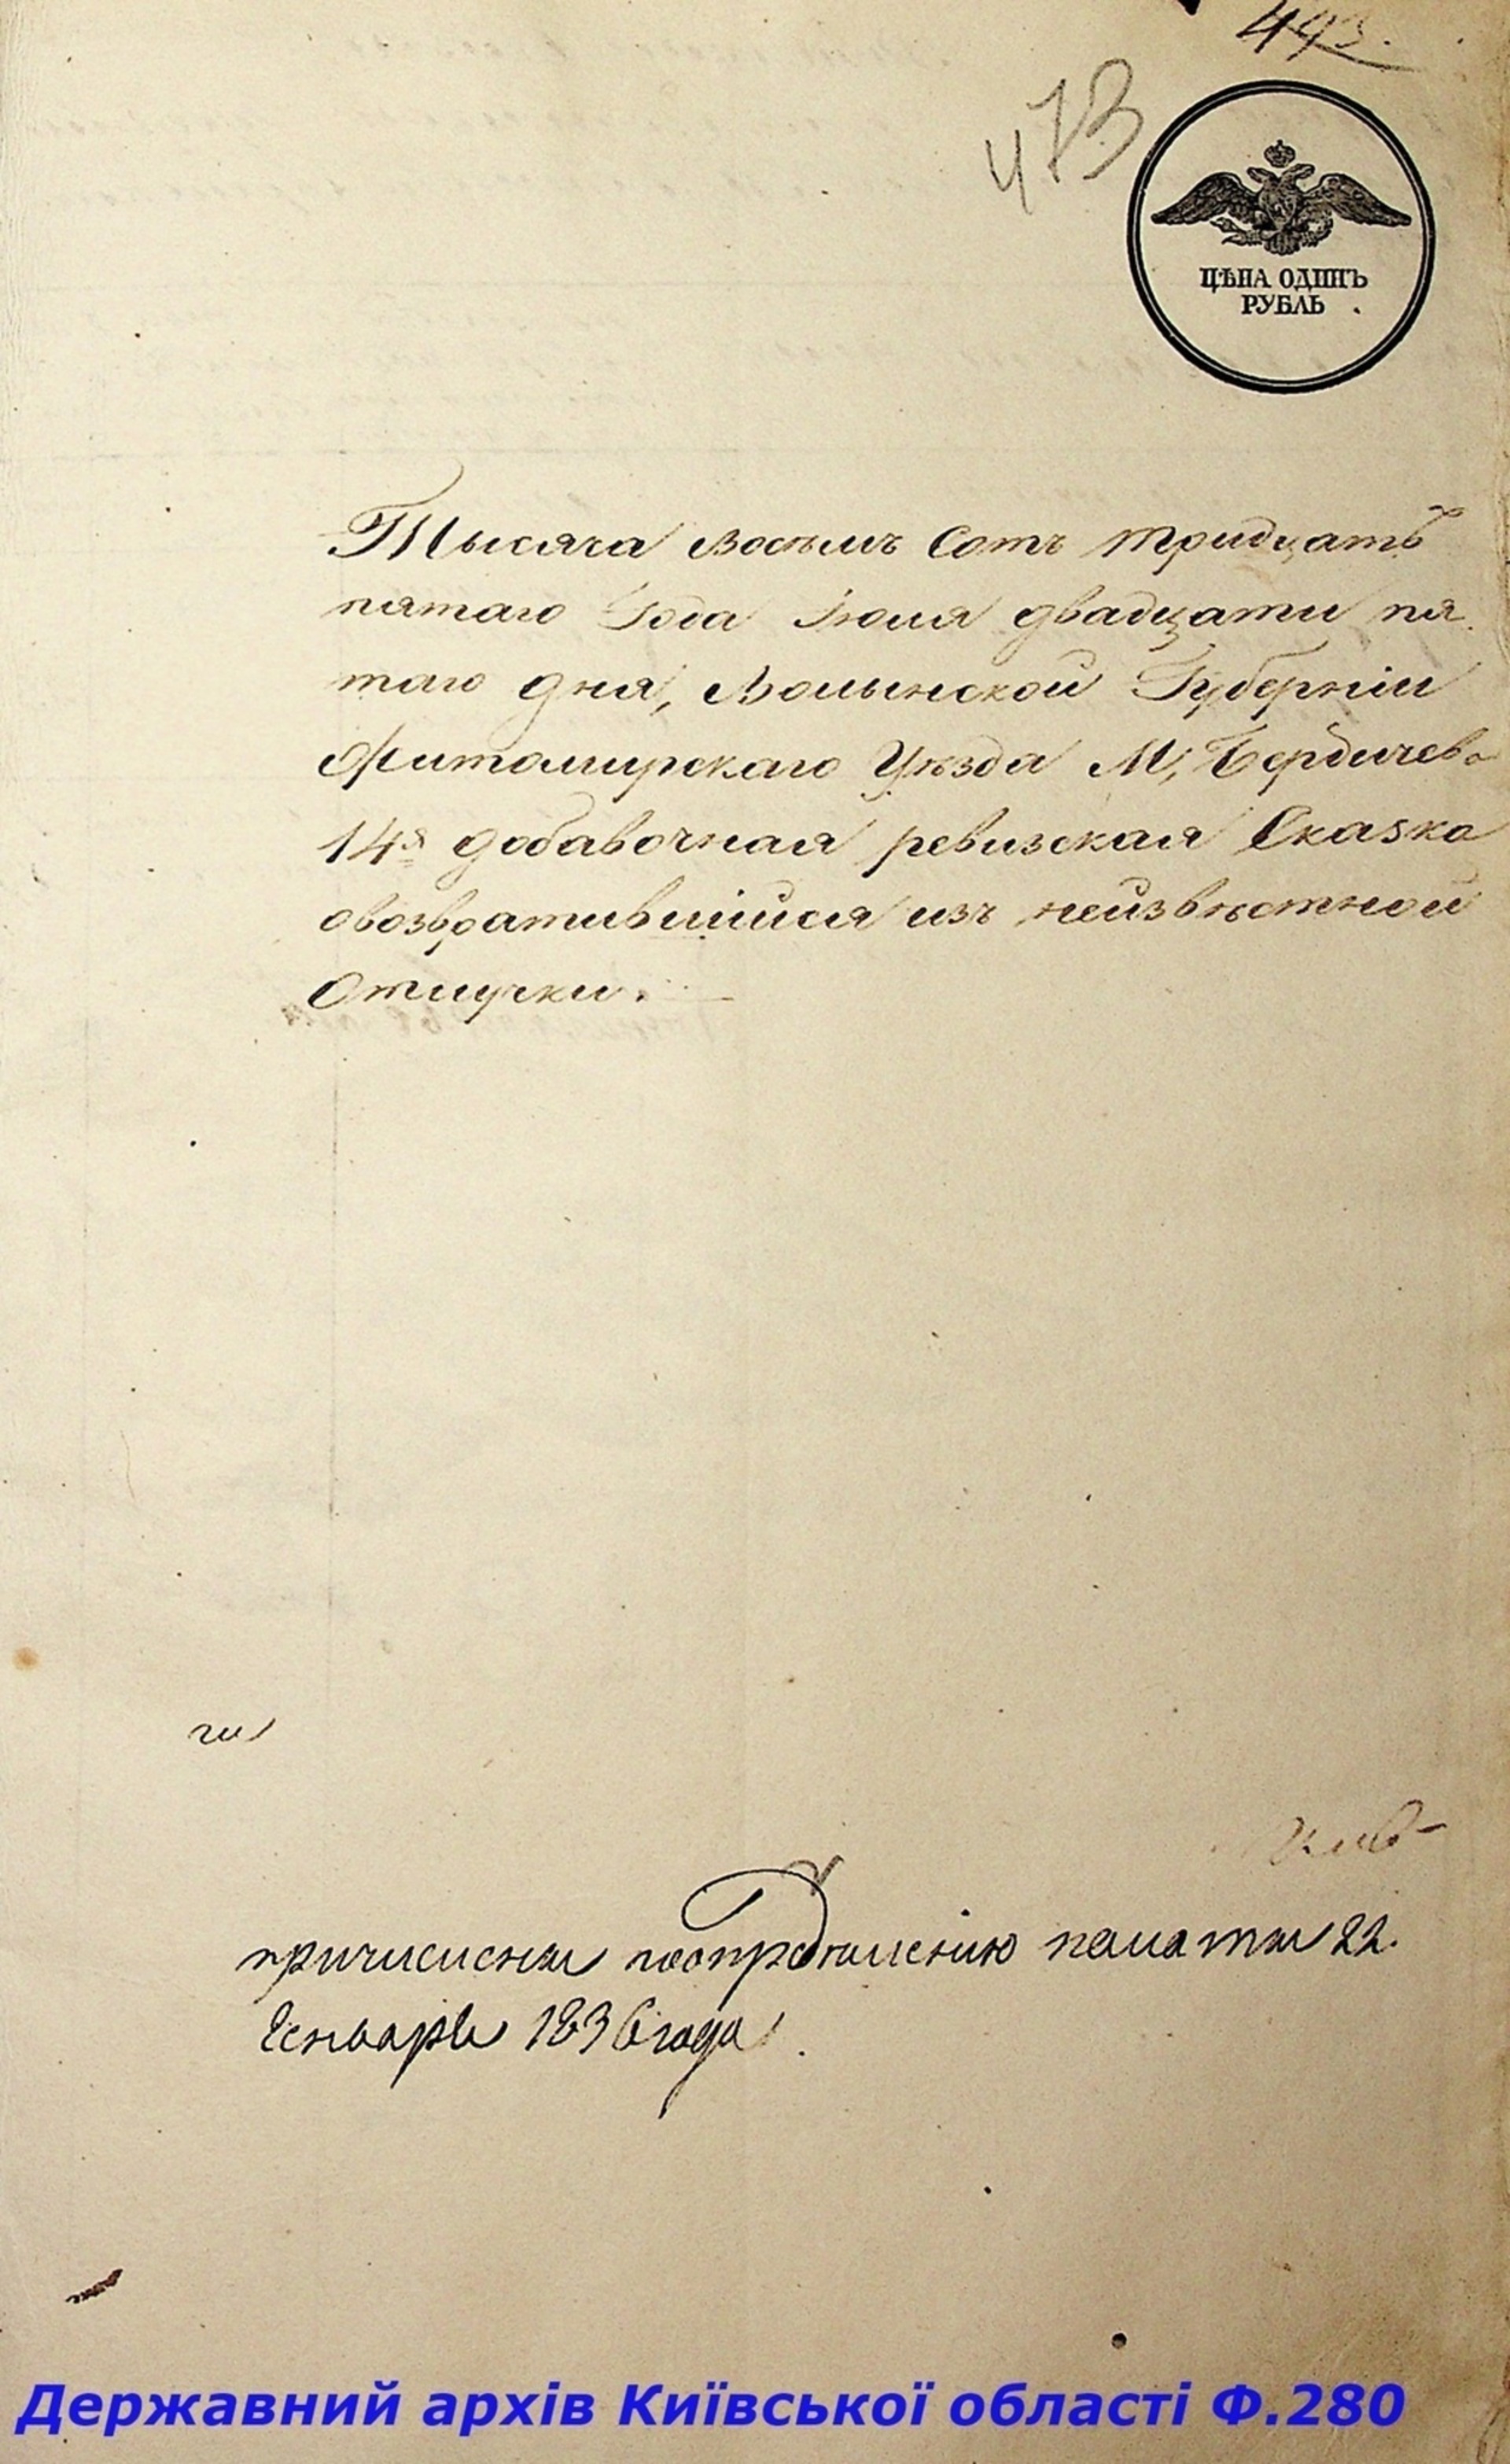 443.
473
ЦѢНА ОДИНЪ
РУБЛЬ
Тысяча восемъ Сотъ тридцать
пятаго Года Іюля двадцати пя
таго дня, Волынской Губерніи
Житомирскаго Уѣзда М, Бердичева
14я добавочная ревизская Сказка
овозвратившійся изъ неизвѣстной
Отлучки.
ги
причислены поопредѣленію палаты 22.
Генваря 1836 года.
Державний архів Київської області Ф.280